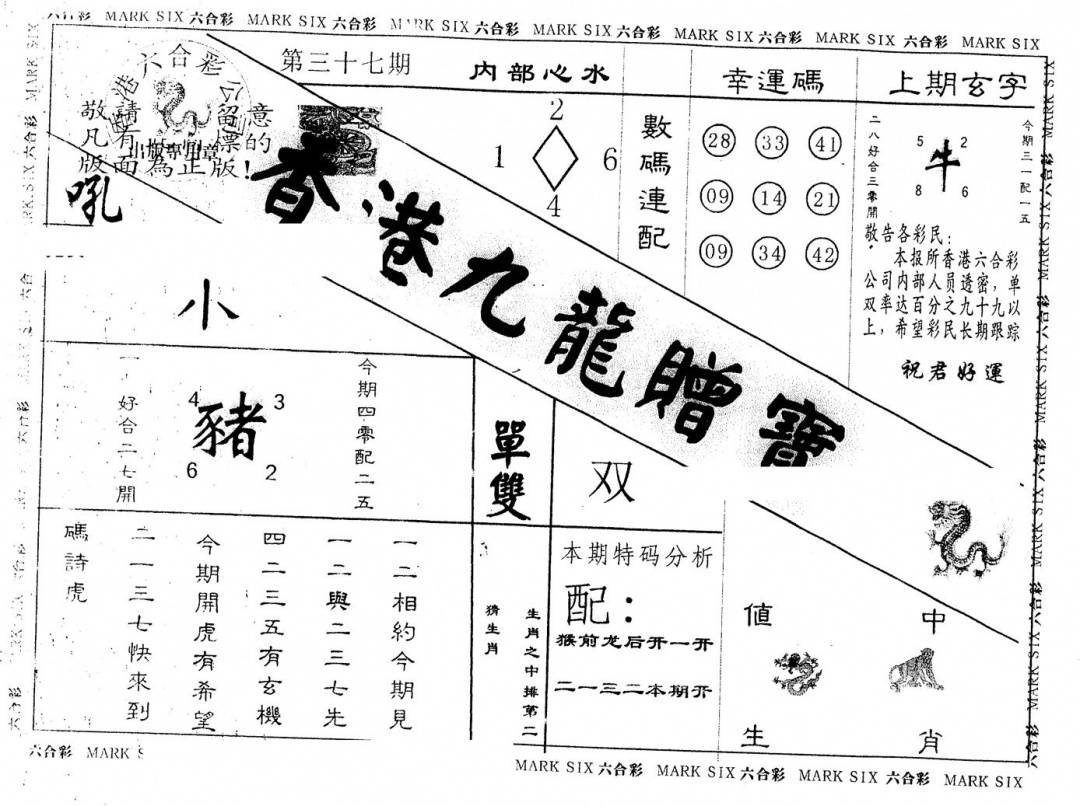 六合彩 MARK SIX 六合彩 MARK SIX 六合彩 MARK SIX 六合彩 MARK SIX 六合彩 MARK SIX 六合彩 MARK SIX 六合彩 MARK SIX
第三十七期
六合彩公
港
敬請留意
凡有標的
版面為正版!
吼
香港九龍贈寶
内部心水
2
1
6
4
數碼連配
幸運碼
28 33 41
09 14 21
09 34 42
上期玄字
二八好合三零開
5 2
牛
8 6
今期三一配一五
敬告各彩民:
本报所香港六合彩
公司内部人员透密,单
双率达百分之九十九以
上,希望彩民长期跟踪
祝君好運
小
一好合二七開
4 3
豬
6 2
今期四零配二五
單雙
双
碼詩虎
一二相約今期見
一二與二三七先
四二三五有玄機
今期開虎有希望
二一三七快來到
猜生肖
生肖之中排第二
本期特码分析
配:
猴前龙后开一开
二一三二本期开
值 中
生 肖
六合彩 MARK S
MARK SIX 六合彩 MARK SIX 六合彩 MARK SIX 六合彩 MARK SIX